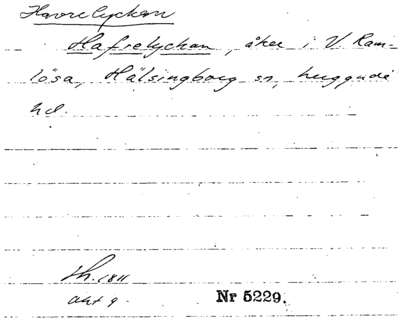 Havrelyckan
Hafrelyckan, åker i V. Ram-
lösa, Hälsingborg sn, Luggude
hd.
Sk. 1811
akt 9.
Nr 5229.